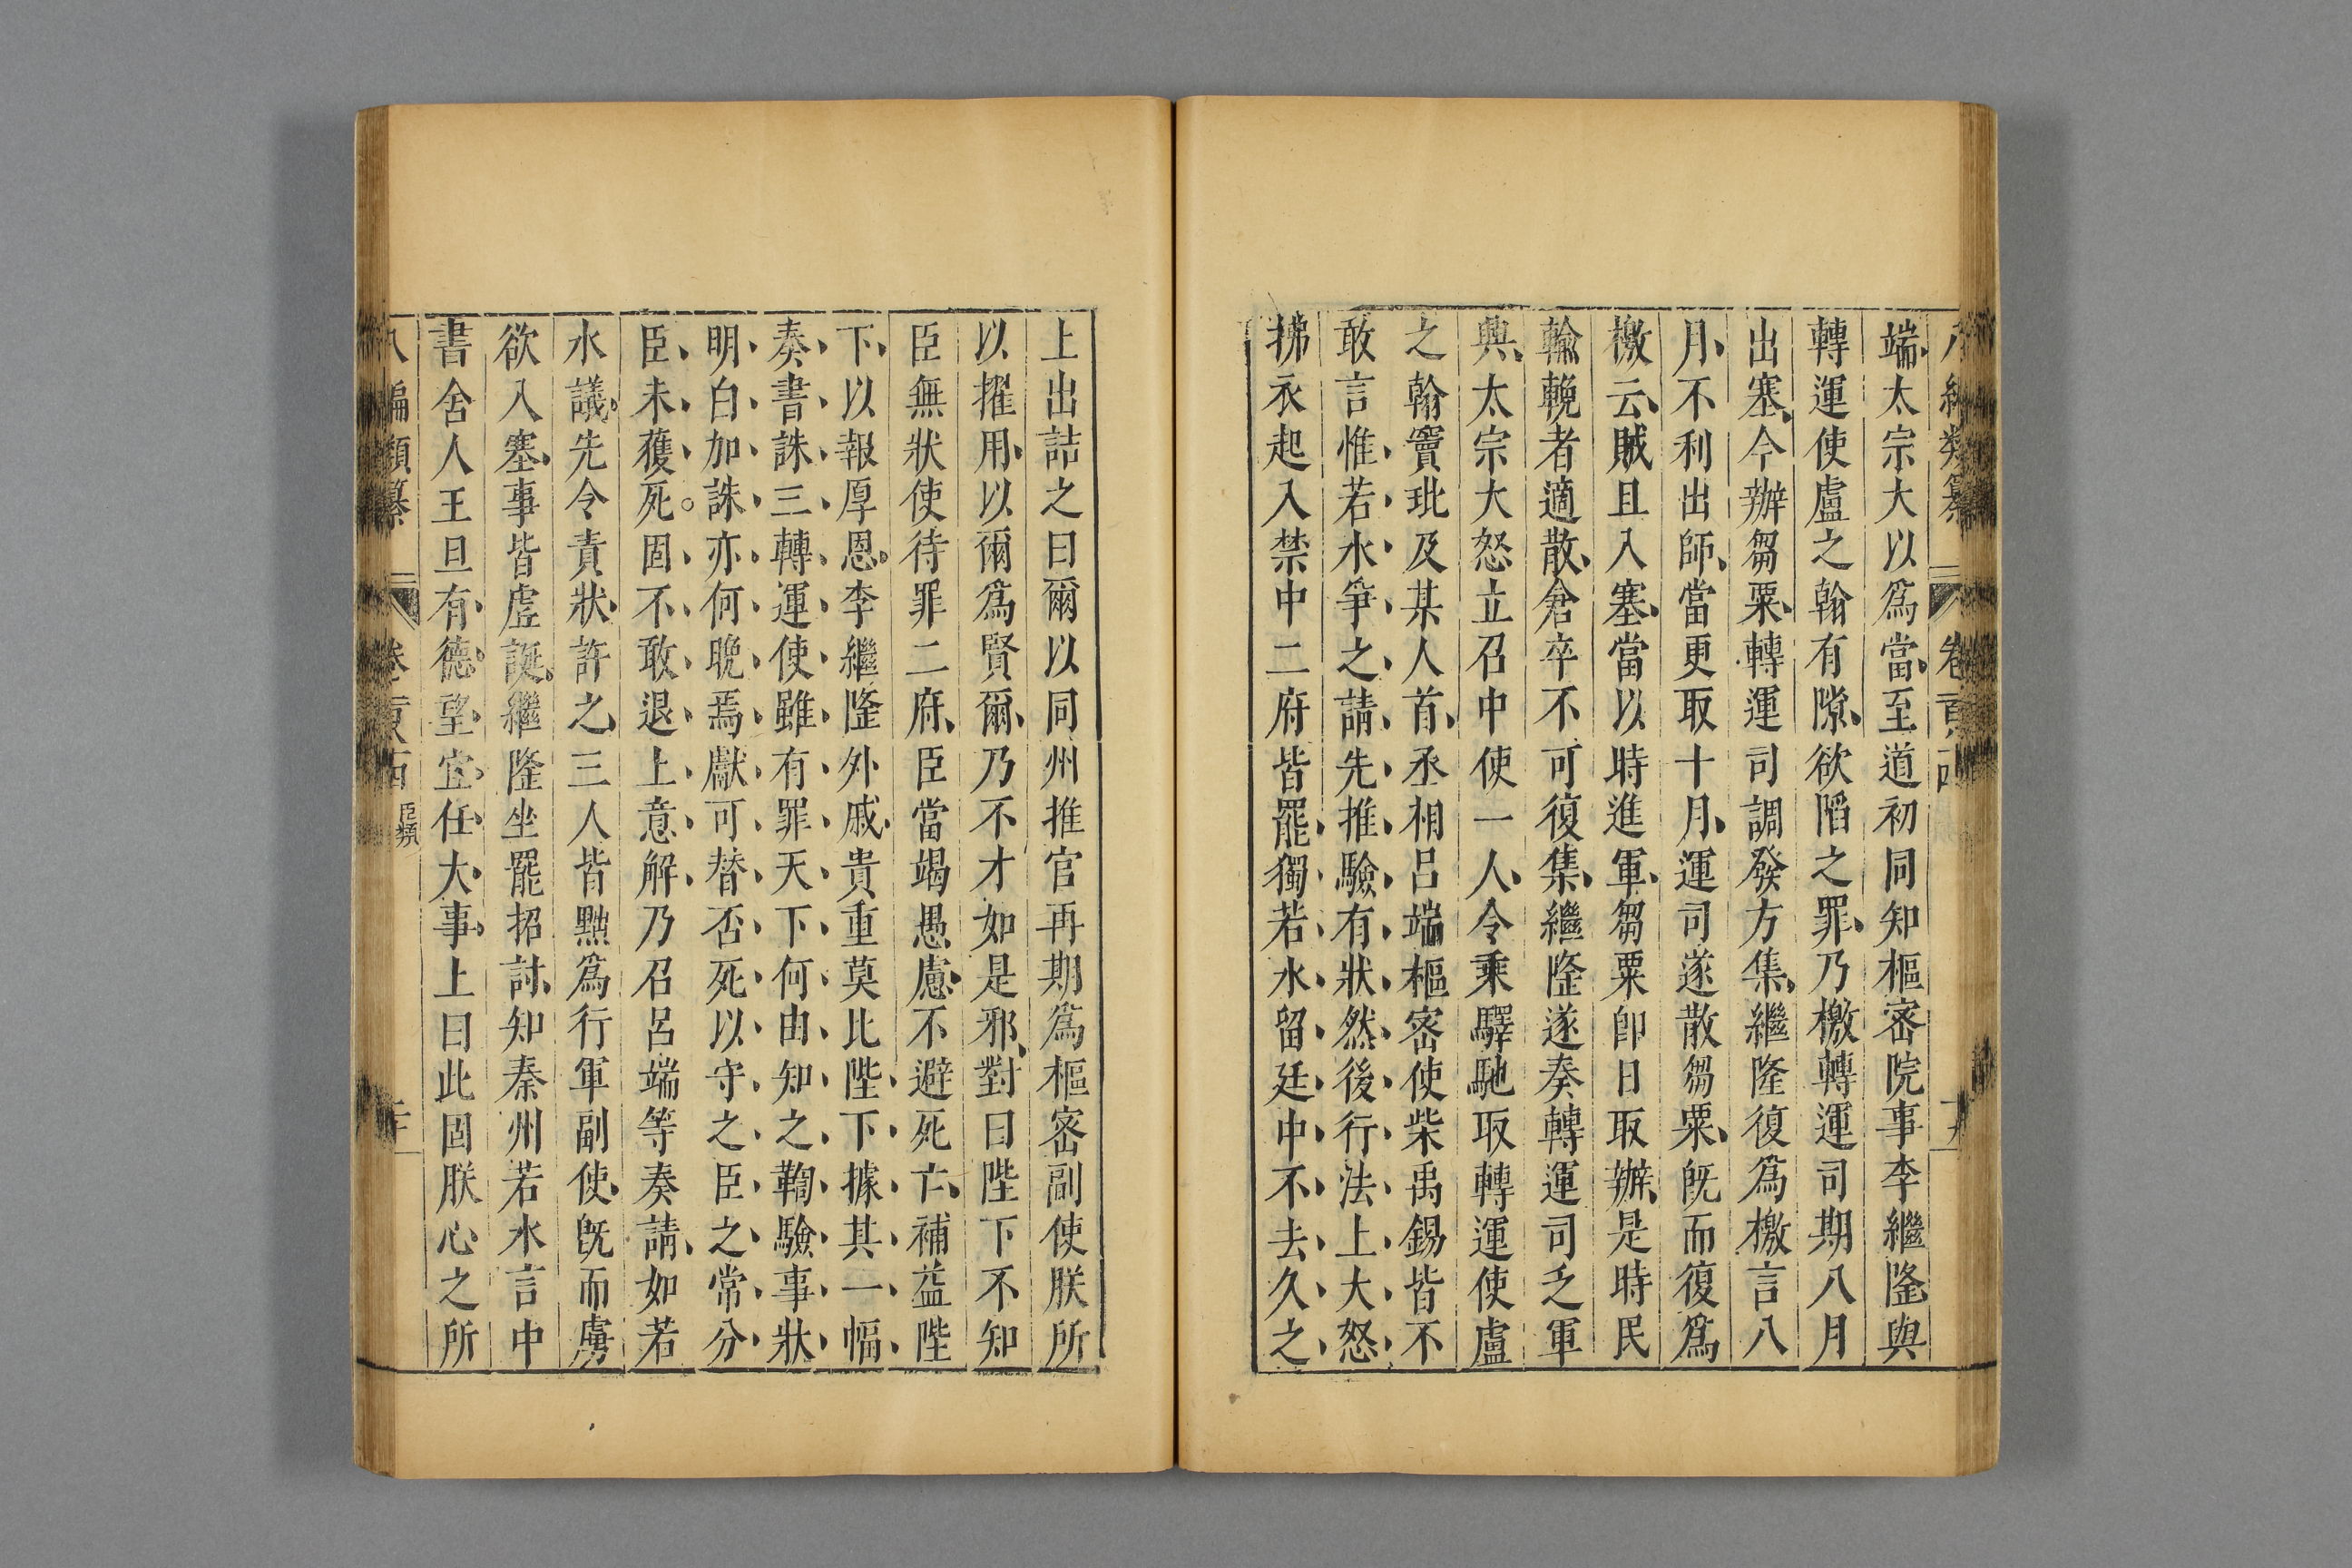 端太宗大以爲當至道初同知樞密院事李繼隆與
轉運使盧之翰有隙欲陷之罪乃檄轉運司期八月
出塞令辦芻粟轉運司調發方集繼隆復爲檄言八
月不利出師當更取十月運司遂散芻粟旣而復爲
檄云賊且入塞當以時進軍芻粟卽日取辦是時民
輸輓者適散倉卒不可復集繼隆遂奏轉運司乏軍
興太宗大怒立召中使一人令乘驛馳取轉運使盧
之翰竇玭及某人首丞相呂端樞密使柴禹錫皆不
敢言惟若水爭之請先推驗有狀然後行法上大怒
拂衣起入禁中二府皆罷獨若水留廷中不去久之
上出詰之曰爾以同州推官再期爲樞密副使朕所
以擢用以爾爲賢爾乃不才如是邪對曰陛下不知
臣無狀使待罪二府臣當竭愚慮不避死亡補益陛
下以報厚恩李繼隆外戚貴重莫比陛下據其一幅
奏書誅三轉運使雖有罪天下何由知之鞫驗事狀
明白加誅亦何晚焉獻可替否死以守之臣之常分
臣未獲死固不敢退上意解乃召呂端等奏請如若
水議先令責狀許之三人皆黜爲行軍副使旣而虜
欲入塞事皆虛誕繼隆坐罷招討知秦州若水言中
書舍人王旦有德望宜任大事上曰此固朕心之所
八編類纂 卷 臣類